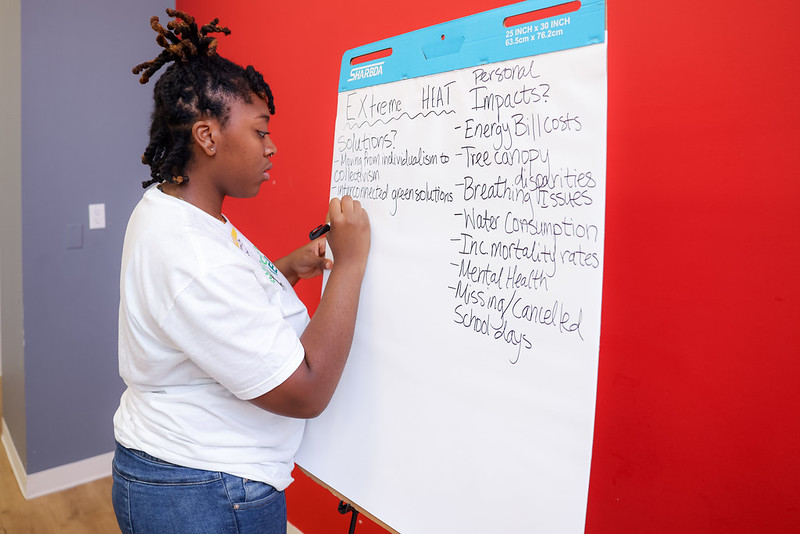 25 INCH x 30 INCH
63.5cm x 76.2cm
SHARBDA
Extreme HEAT
Solutions?
-Moving from individualism to
collectivism
-interconnected green solutions
Personal
Impacts?
-Energy Bill costs
-Tree canopy
disparities
-Breathing Issues
-Water Consumption
-Inc. mortality rates
-Mental Health
-Missing/Cancelled
School days